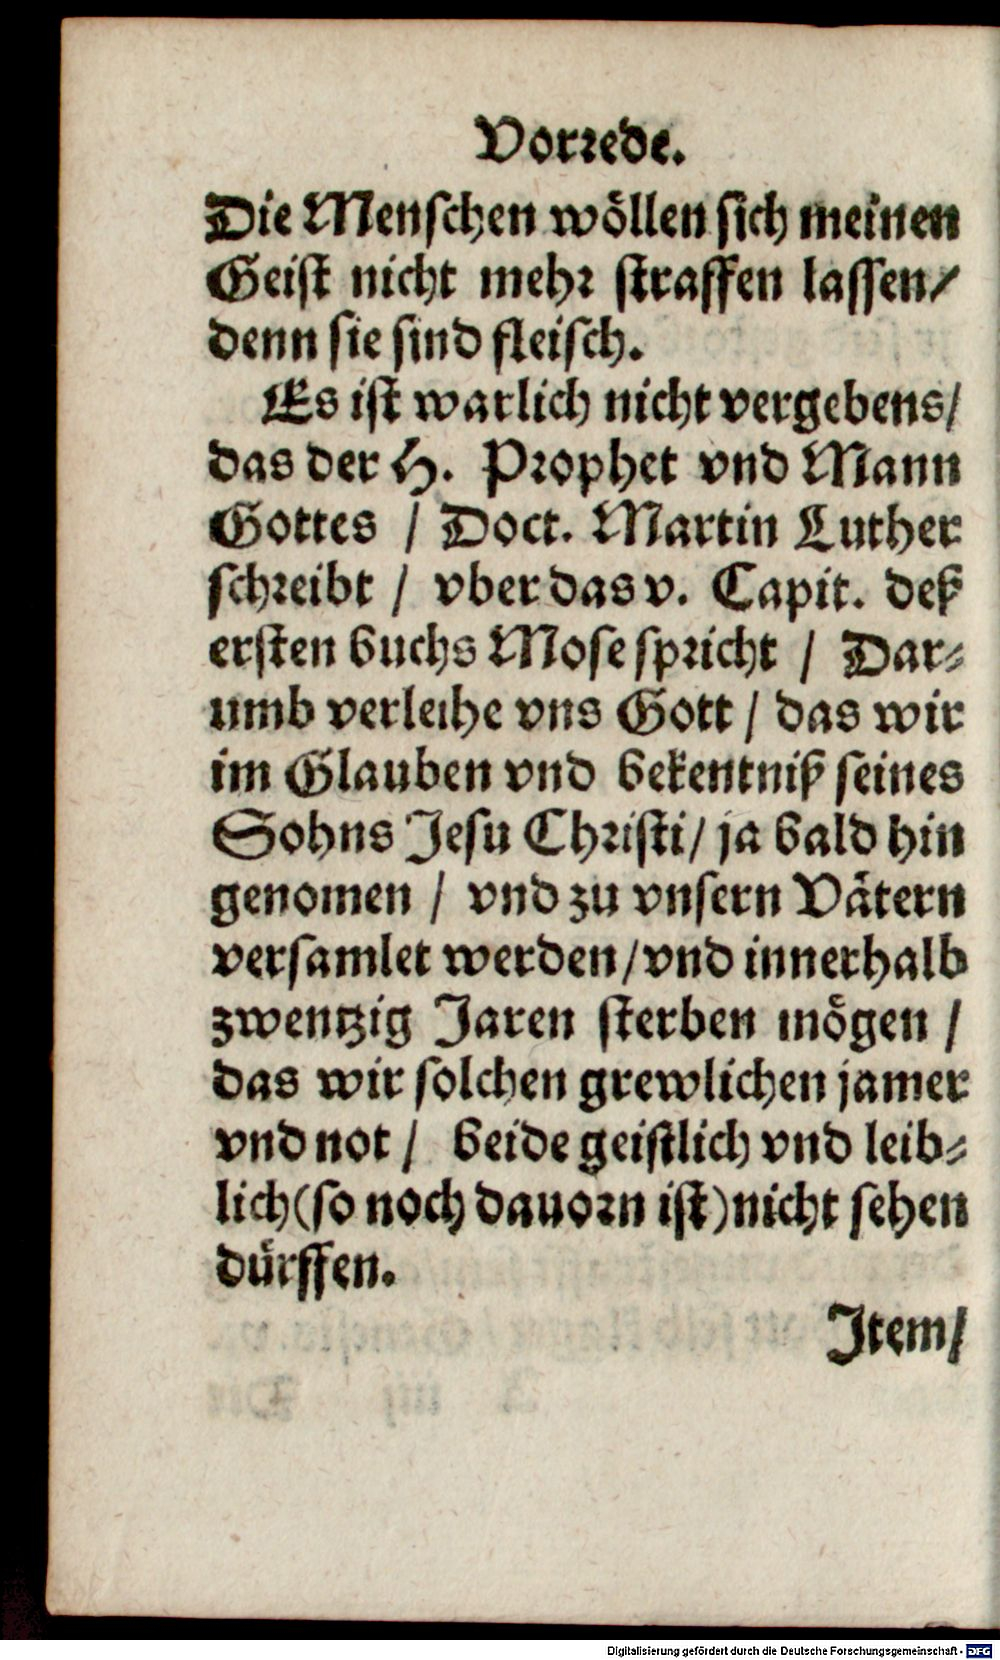 Vorrede.
Die Menschen wöllen sich meinen
Geist nicht mehr straffen lassen/
denn sie sind fleisch.
Es ist warlich nicht vergebens/
das der H. Prophet vnd Mann
Gottes / Doct. Martin Luther
schreibt / vber das v. Capit. deß
ersten buchs Mose spricht / Dar-
umb verleihe vns Gott / das wir
im Glauben vnd bekentniß seines
Sohns Jesu Christi/ ja bald hin
genomen / vnd zu vnsern Vätern
versamlet werden/vnd innerhalb
zwentzig Jaren sterben mögen /
das wir solchen grewlichen jamer
vnd not / beide geistlich vnd leib-
lich(so noch dauorn ist)nicht sehen
dürffen.
Item/
Digitalisierung gefördert durch die Deutsche Forschungsgemeinschaft - DFG